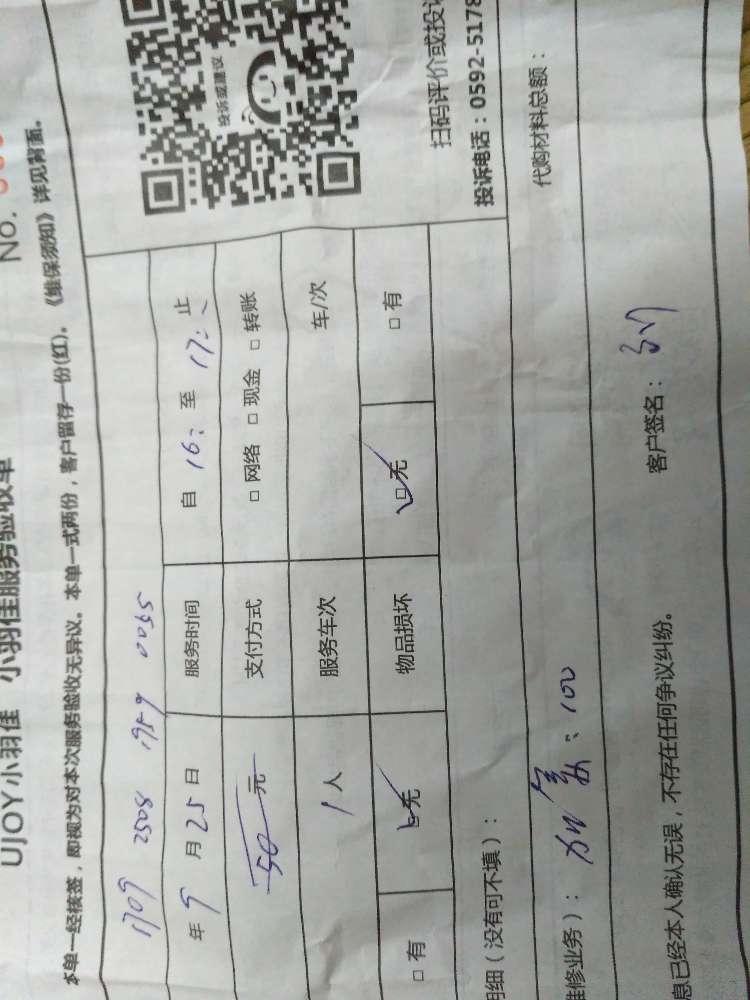 UJOY小羽佳 小羽佳服务验收单
No.
本单一经核签，即视为对本次服务验收无异议。本单一式两份，客户留存一份(红)。《维保须知》详见背面。
1709 2508 1929 0055
年 9 月 25 日 服务时间 自 16: 至 17: 止
50 元 支付方式 □ 网络 □ 现金 □ 转账
1 人 服务车次 车/次
□ 有 □ 无 物品损坏 □ 无 □ 有
投诉或建议
扫码评价或投诉
投诉电话：0592-5178
明细（没有可不填）：
维修业务）： : 100 代购材料总额：
息已经本人确认无误，不存在任何争议纠纷。 客户签名：